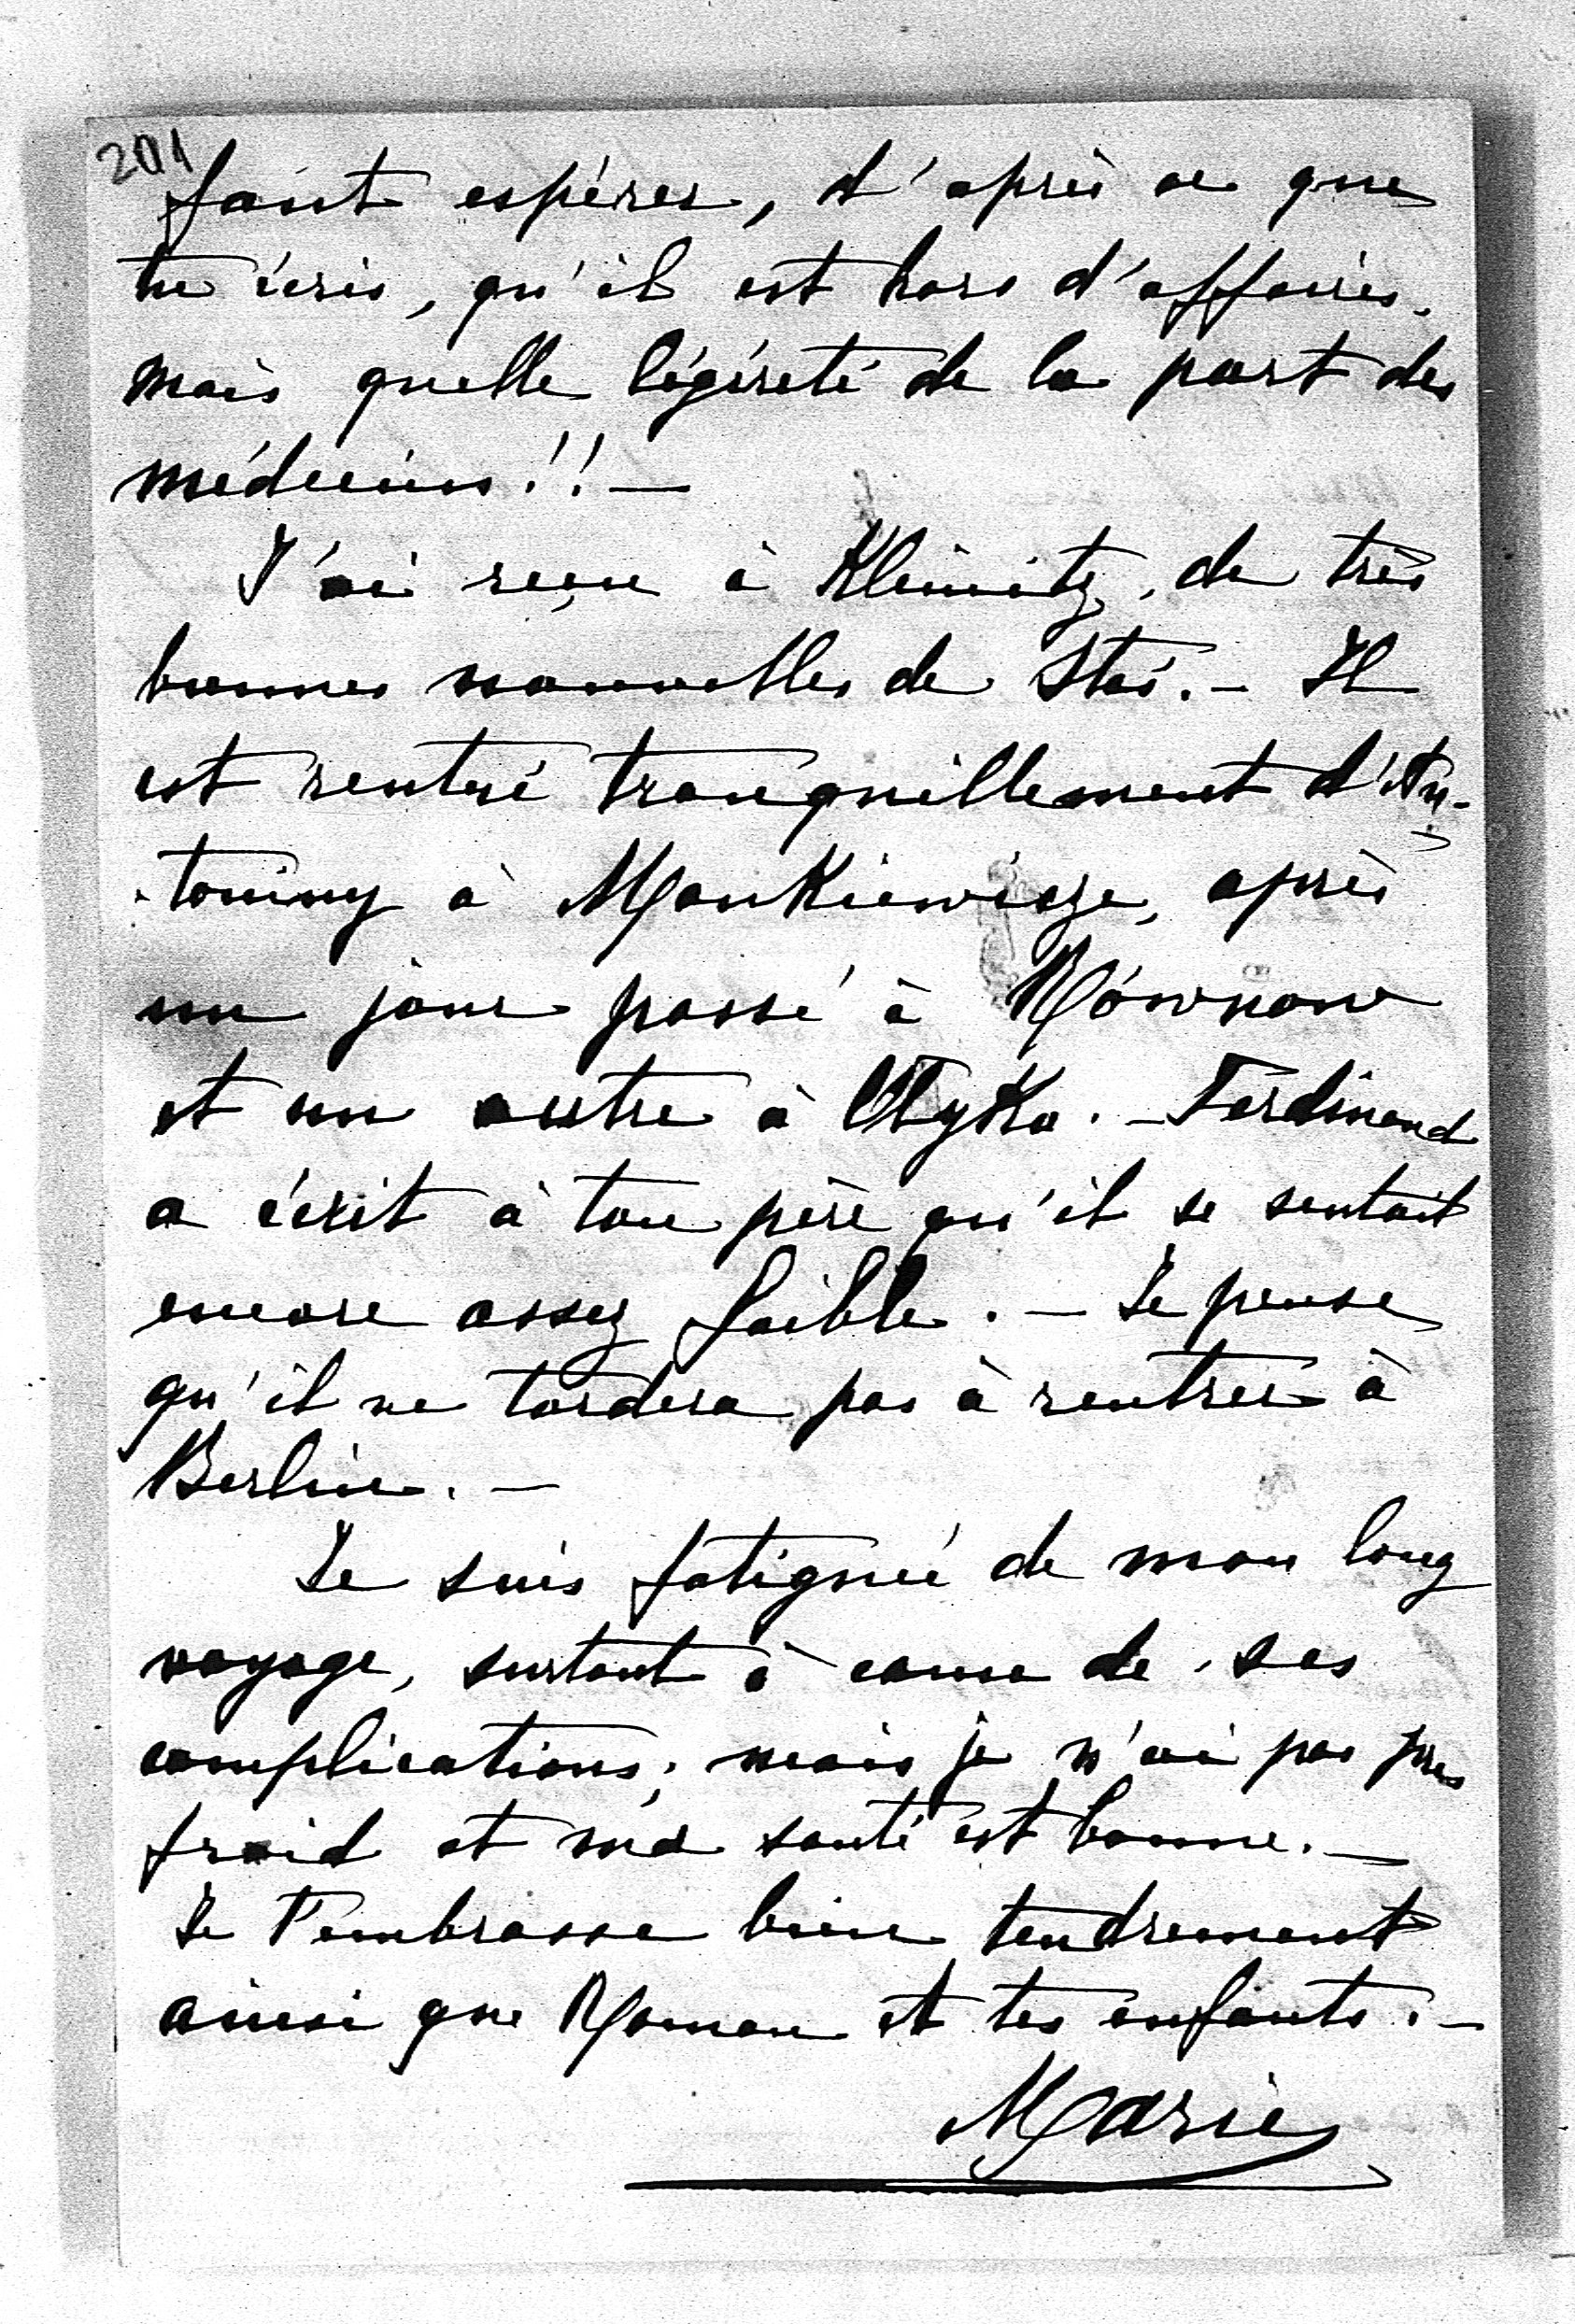 201
faut espérer, d'après ce que
tu écris, qu'il est hors d'affaires,
mais quelle légéreté de la part des
médecins!! —
J'ai reçu à Klenitz, de très
bonnes nouvelles de Staś. — Il
est rentré tranquillement d'An-
toniny à Mankiewicze, après
un jour passé à Równow
et un autre à Ołyka. — Ferdinand
a écrit à ton père qu'il se sentait
encore assez faible. — Je pense
qu'il ne tardera pas à rentrer à
Berlin. —
Je suis fatiguée de mon long
voyage, surtout à cause de ses
complications; mais je n'ai pas pris
froid et ma santé est bonne. —
Je t'embrasse bien tendrement
ainsi que Roman et tes enfants. —
Marie